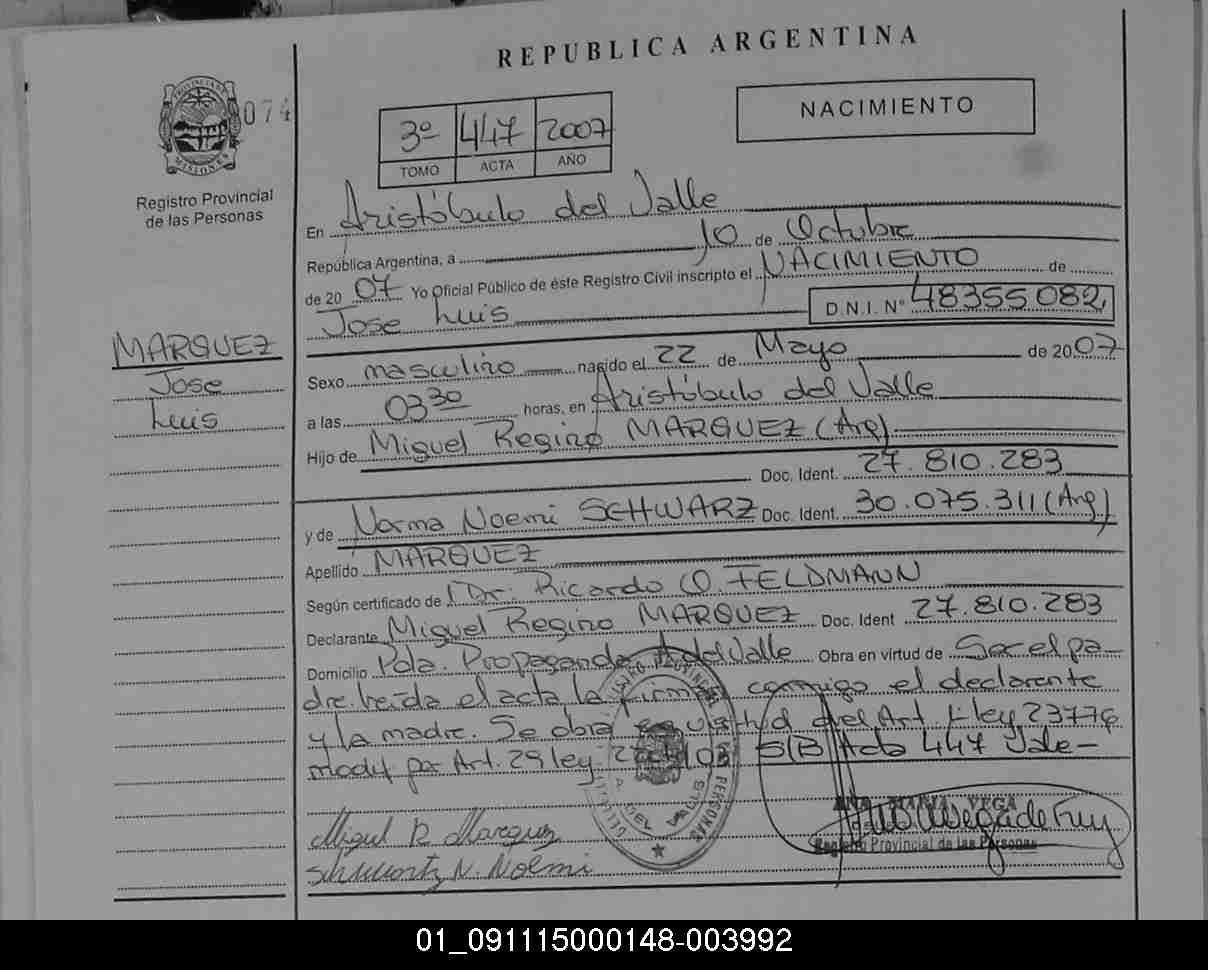 REPUBLICA ARGENTINA
074
PROVINCIA DE
MISIONES
Registro Provincial
de las Personas
3º 447 2007
TOMO ACTA AÑO
NACIMIENTO
En Aristóbulo del Valle
República Argentina, a 10 de Octubre
de 20 07 Yo Oficial Público de éste Registro Civil inscripto el NACIMIENTO de
Jose Luis D.N.I. Nº 48355082
MARQUEZ
Jose
Luis
Sexo masculino nacido el 22 de Mayo de 20 07
a las 03 30 horas, en Aristóbulo del Valle
Hijo de Miguel Regino MARQUEZ (Arg)
Doc. Ident. 27.810.283
y de Norma Noemi SCHWARZ Doc. Ident. 30.075.311 (Arg)
Apellido MARQUEZ
Según certificado de Dr. Ricardo O. FELDMANN
Declarante Miguel Regino MARQUEZ Doc. Ident 27.810.283
Domicilio Pda. Propaganda A del Valle Obra en virtud de Ser el pa-
dre. Leída el acta la firman conmigo el declarante
y la madre. Se obra en virtud del Art 1 ley 23776
modif por Art. 29 ley S/B Acta 447 Vale-
Miguel R Marquez
Schwartz N. Noemi
ANA MARIA VEGA
Registro Provincial de las Personas
01_091115000148-003992